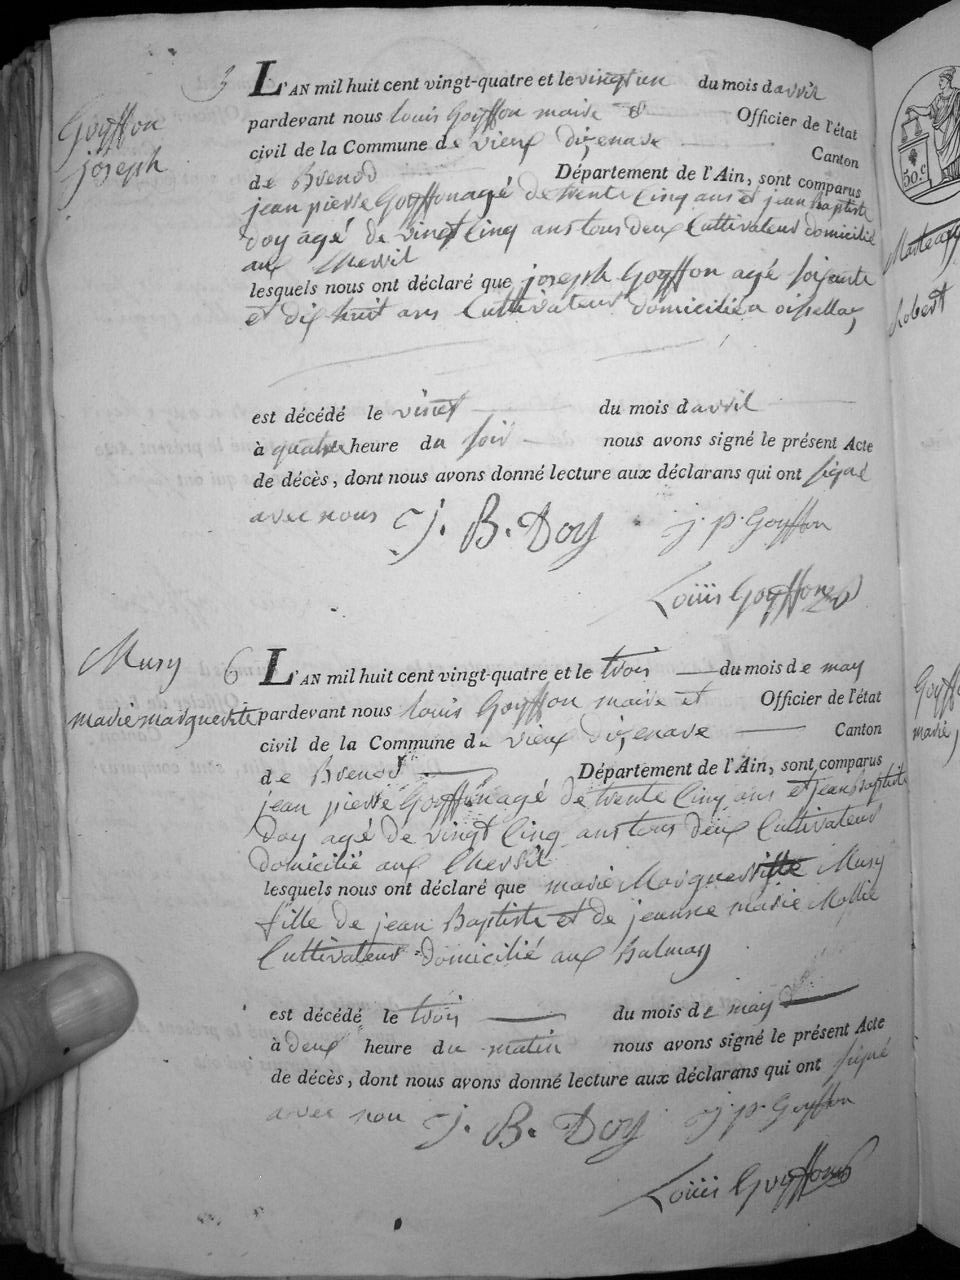 Goyffon
joseph
L'AN mil huit cent vingt-quatre et le vingt un du mois d avril
pardevant nous Louis Goyffon maire & Officier de l'état
civil de la Commune de vieux dizenave Canton
de Brenod Département de l'Ain, sont comparus
jean pierre Goyffon agé de trente Cinq ans et jean baptiste
Doy agé de vingt Cinq ans tous deux Cultivateur domicilié
aux
lesquels nous ont déclaré que joseph Goyffon agé soixante
et dix huit ans Cultivateur domicilié a
est décédé le vinct du mois d avril
à quatre heure du soir nous avons signé le présent Acte
de décès, dont nous avons donné lecture aux déclarans qui ont signé
avec nous J. B. Doy j. p. Goyffon
Louis Goyffon
Musy 6
marie marguerite
L'AN mil huit cent vingt-quatre et le trois du mois de may
pardevant nous Louis Goyffon maire et Officier de l'état
civil de la Commune de vieux dizenave Canton
de Brenod Département de l'Ain, sont comparus
jean pierre Goyffon agé de trente Cinq ans et jean baptiste
Doy agé de vingt Cinq ans tous deux Cultivateur
domicilié aux
lesquels nous ont déclaré que marie Musy
fille de jean Baptiste et de marie
Cultivateur domicilié aux balmay
est décédé le trois du mois de may
à deux heure du matin nous avons signé le présent Acte
de décès, dont nous avons donné lecture aux déclarans qui ont signé
avec nou J. B. Doy j. p. Goyffon
Louis Goyffon
50.c
Robert
marie,